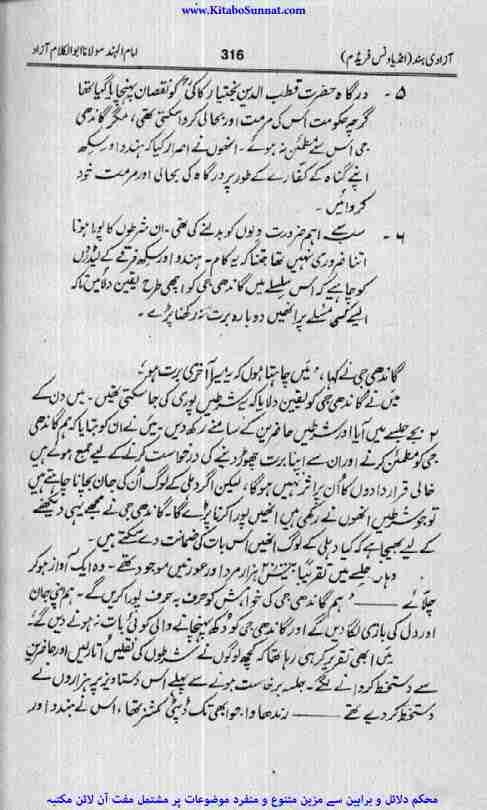 www.KitaboSunnat.com
آزادی ہند (انڈیا ونس فریڈم) 316 امام الہند مولانا ابوالکلام آزاد
۵ - درگاہ حضرت قطب الدین بختیار کاکیؒ کو نقصان پہنچایا گیا تھا
گرچہ حکومت اس کی مرمت اور بحالی کروا سکتی تھی، مگر گاندھی
جی اس سے مطمئن نہ ہوئے۔ انھوں نے اصرار کیا کہ ہندو اور سکھ
اپنے گناہ کے کفارے کے طور پر درگاہ کی بحالی اور مرمت خود
کروائیں۔
۶ - سب سے اہم ضرورت دلوں کو بدلنے کی تھی۔ ان شرطوں کا پورا ہونا
اتنا ضروری نہیں تھا جتنا کہ یہ کام۔ ہندو اور سکھ فرقے کے لیڈروں
کو چاہیے کہ اس سلسلے میں گاندھی جی کو اچھی طرح یقین دلائیں تاکہ
ایسے کسی مسئلے پر انھیں دوبارہ برت نہ رکھنا پڑے۔
گاندھی جی نے کہا، "میں چاہتا ہوں کہ یہ میرا آخری برت ہو"۔
میں نے گاندھی جی کو یقین دلایا کہ یہ شرطیں پوری کی جا سکتی تھیں۔ میں دن کے
۲ بجے جلسے میں آیا اور شرطیں حاضرین کے سامنے رکھ دیں۔ میں نے ان کو بتایا کہ ہم گاندھی
جی کو مطمئن کرنے اور ان سے اپنا برت چھوڑ دینے کی درخواست کرنے کے لیے جمع ہوئے ہیں
خالی قراردادوں کا اُن پر اثر نہیں ہوگا، لیکن اگر دہلی کے لوگ اُن کی جان بچانا چاہتے ہیں
تو جو شرطیں انھوں نے رکھی ہیں انھیں پورا کرنا پڑے گا۔ گاندھی جی نے مجھے یہی دیکھنے
کے لیے بھیجا ہے کہ کیا دہلی کے لوگ انھیں اس بات کی ضمانت دے سکتے ہیں۔
وہاں جلسے میں تقریباً بیس ہزار مرد اور عورتیں موجود تھے۔ وہ ایک آواز ہو کر
چلائے —— "ہم گاندھی جی کی خواہش کو حرف بہ حرف پورا کریں گے۔ ہم اپنی جان
اور دل کی بازی لگا دیں گے اور گاندھی جی کو دکھ پہنچانے والی کوئی بات نہ ہونے دیں گے"۔
میں ابھی تقریر کر ہی رہا تھا کہ کچھ لوگوں نے شرطوں کی نقلیں اُتار لیں اور حاضرین
سے دستخط کروانے لگے۔ جلسہ برخاست ہونے سے پہلے اس دستاویز پر ہزاروں نے
دستخط کر دیے تھے —— رندھاوا جو ابھی تک ڈپٹی کمشنر تھا، اس نے ہندو اور
محکم دلائل و براہین سے مزین متنوع و منفرد موضوعات پر مشتمل مفت آن لائن مکتبہ